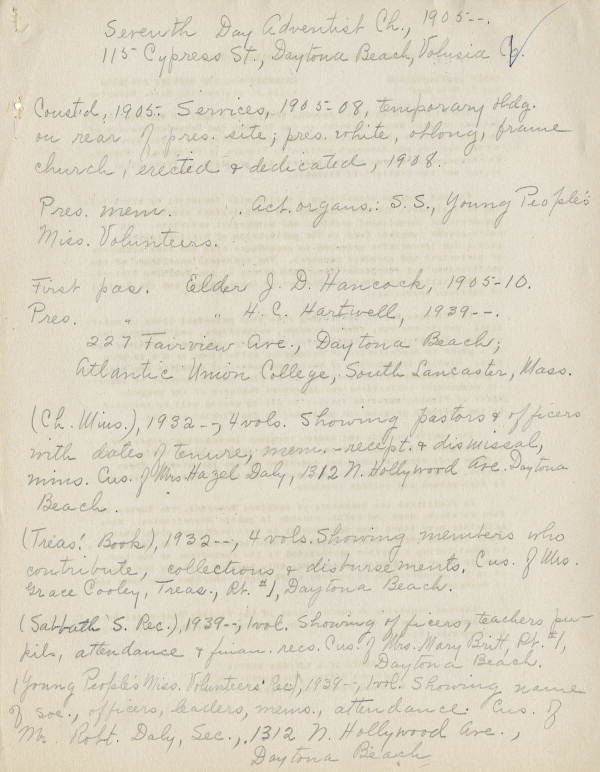 Seventh Day Adventist Ch., 1905--.
115 Cypress St., Daytona Beach, Volusia Co.
Const'd, 1905. Services, 1905-08, temporary bldg.
on rear of pres. site; pres. white, oblong, frame
church, erected & dedicated, 1908.
Pres. mem. . Act. organs.: S.S., Young People's
Miss. Volunteers.
First pas. Elder J. D. Hancock, 1905-10.
Pres. " " H. C. Hartwell, 1939--.
227 Fairview Ave., Daytona Beach;
Atlantic Union College, South Lancaster, Mass.
(Ch. Mins.), 1932--, 4 vols. Showing pastors & officers
with dates of tenure, mem.-recept. & dismissal,
mins. Cus. of Mrs Hazel Daly, 1312 N. Hollywood Ave. Daytona
Beach.
(Treas! Book), 1932--, 4 vols. Showing members who
contribute, collections & disbursements. Cus. of Mrs.
Grace Cooley, Treas., Rt. #1, Daytona Beach.
(Sabbath S. Rec.), 1939--, 1 vol. Showing officers, teachers pu-
pils, attendance & finan. recs. Cus. of Mrs. Mary Britt, Rt. #1,
Daytona Beach.
(Young People's Miss. Volunteers' Rec), 1939--, 1 vol. Showing name
of soc., officers, leaders, mems., attendance. Cus. of
Robt. Daly, Sec., 1312 N. Hollywood Ave.,
Daytona Beach